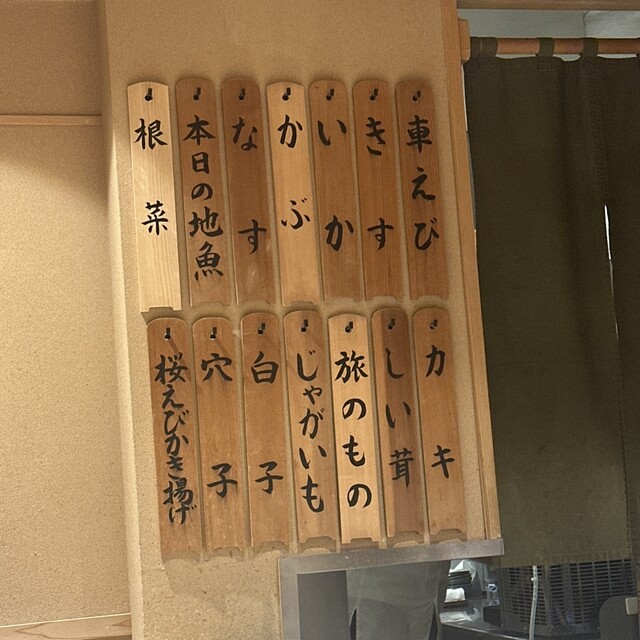 車えび
きす
いか
かぶ
なす
本日の地魚
根菜
カキ
しい茸
旅のもの
じゃがいも
白子
穴子
桜えびかき揚げ